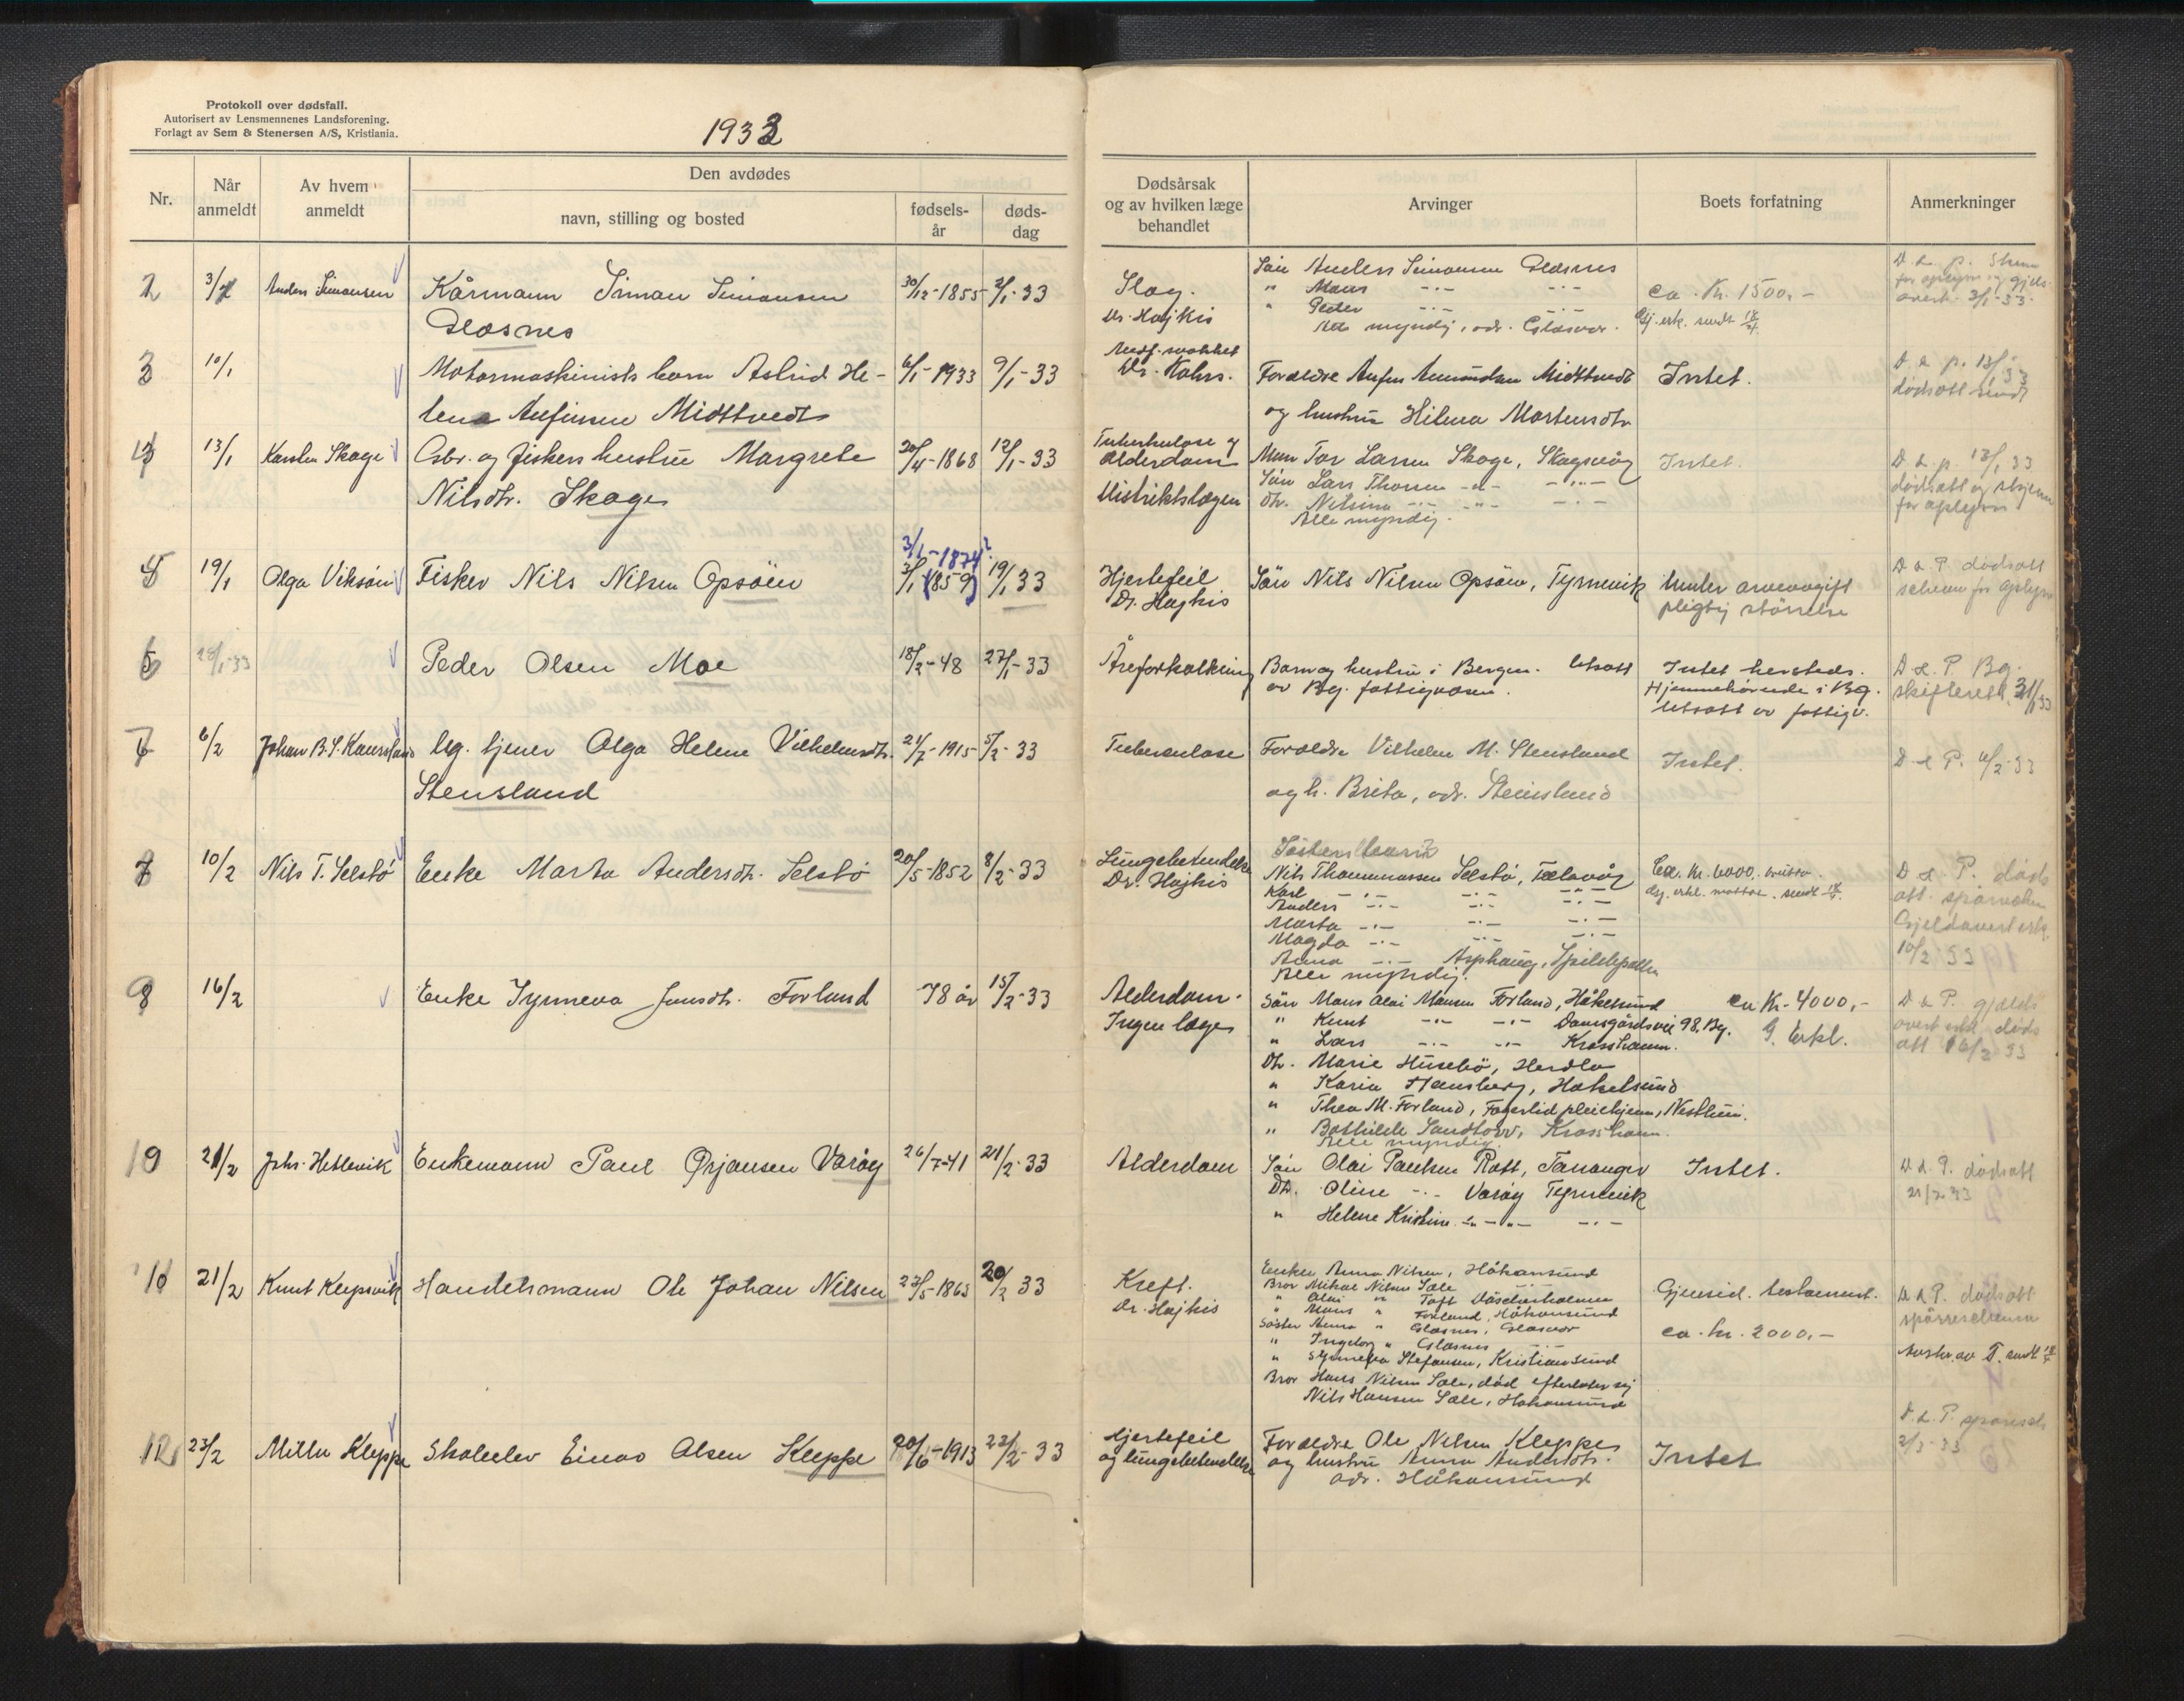 Protokoll over dødsfall.
Autorisert av Lensmennenes Landsforening.
Forlagt av Sem & Stenersen A/S, Kristiania.
1933
Nr.
Når anmeldt
Av hvem anmeldt
Den avdødes
navn, stilling og bosted
fødsels-år
døds-dag
Dødsårsak og av hvilken læge behandlet
Arvinger
Boets forfatning
Anmerkninger
2 3/1 Anders Simonsen Kårmann Simon Simonsen 30/12-1855 2/1-33
Glæsnes
Slag.
Dr. Højkis
Sön Anders Simonsen Glæsnes
" Mons -"- -"-
" Peder -"- -"-
Alle myndig, adr. Glæsvær.
ca. Kr. 1500,-
Gj. erk. sendt
D. d. p. Skema
for oplysn og gjelds
overt. 3/1-33.
3 10/1 Motormaskinists barn Astrid He- 6/1-1933 9/1-33
lena Anfinsen Midttvedt
Medf. svakhet
Dr. Kahrs.
Foreldre Anfin Amundsen Midttvedt
og hustru Hilena Martensdtr
Intet.
D. d. p. 13/1-33
dödsatt sendt
4 13/1 Karsten Skage Gbr. og fiskers hustru Margrete 20/4-1868 12/1-33
Nilsdtr. Skage
Tuberkulose og
Alderdom
Distriktslægen
Man Tor Larsen Skoge, Skogsvåg
Sön Lars Thorsen -"- -"-
Dtr. Nilsina -"- -"- -"-
Alle myndig.
Intet.
D. d. p. 13/1 33
dödsatt og skjema
for oplysn
5 19/1 Olga Viksöen Fisker Nils Nilsen Opsöen 3/1-1874? 3/1 (1859) 19/1 33
Hjertefeil
Dr. Højkis
Sön Nils Nilsen Opsöen, Tyrnevik
Under arveavgift
pligtig störrelse
D d P dödsatt
schema for oplysn
6 28/1-33 Peder Olsen Moe 18/2-48 27/1-33
Åreforkalkning
Barn og hustru i Bergen. Utsatt
av Bg. fattigvæsen.
Intet hersteds.
Hjemmehörende i Bg.
Utsatt av fattigv.
D. d. P Bg.
skifterett 31/1 33
7 6/2 Johan B. S. Ug. tjener Olga Helene Vilhelmsdtr. 21/7-1915 5/2-33
Stensland
Tuberculose
Foreldre Vilhelm M. Stensland
og h. Brita, adr. Steinsland
Intet.
D d P. 6/2-33
8 10/2 Nils T. Selstö Enke Marta Andersdtr. Selstö 20/5-1852 8/2-33
Lungebetendelse
Dr. Højkis
Nils Thommassen Selstö, Tælavåg
Karl -"- -"- -"-
Anders -"- -"- -"-
Marta -"- -"- -"-
Magda -"- -"- -"-
Anna -"- Asphaug,
Alle myndig.
Ca. Kr. 6000, brutto.
D d P. döds
att. spörreschem
Gjeldsovert erk.
10/2 33
9 16/2 Enke Synneva Jonsdtr. Forland 78 år 15/2-33
Alderdom.
Ingen læge
Sön Mons Olai Monsen Forland, Håkelsund
" Knut -"- -"- Damsgårdsvei 98, Bg.
" Lars -"- -"- Krosshamn.
Dtr. Marie Husebö, Herdla
" Karia Hansberg, Hakelsund
" Thea M. Forland, Fagerlid pleiehjem, Nesttun.
" Bothilde Sandtorv, Krosshamn.
Alle myndig.
ca Kr. 4000,-
G. Erkl.
D d P. gjelds
overt erkl. döds
att 16/2 33
10 21/2 Johs. Hetlevik Enkemann Paul Ørjansen Varöy 26/7-41 21/2-33
Alderdom
Sön Olai Paulsen Rott, Tananger
Dtr. Oline -"- Varöy Tyrnevik
" Helene Kristine -"- -"- -"-
Intet.
D. d. P. dödsatt
21/2 33
11 21/2 Knut Klepsvik Handelsmann Ole Johan Nilsen 23/5-1863 20/2 33
Kreft.
Dr. Højkis
Enke Anna Nilsen, Håkonsund
Bror Mikal Nilsen Sæle
" Olai " Toft
" Mons " Forland, Håkonsund
Söster Anna " Glæsnes, Glæsvær
" Ingeborg " Glæsnes -"-
" Synneva Stefansen, Kristiansund
Bror Hans Nilsen Sæle, död efterlater sig
Nils Hansen Sæle, Håkonsund
Gjensid. testament.
ca. kr. 2000,-
D. d. P. dödsatt
spörreschema
Avskr. av T. sendt
12 23/2 Milla Kleppe Skoleelev Einar Olsen Kleppe 20/6-1913 22/2-33
Hjertefeil
og lungebetendelse
Foreldre Ole Nilsen Kleppe
og hustru Anna Andersdtr.
adr. Håkonsund
Intet
D. d. P. spörresch
2/3-33